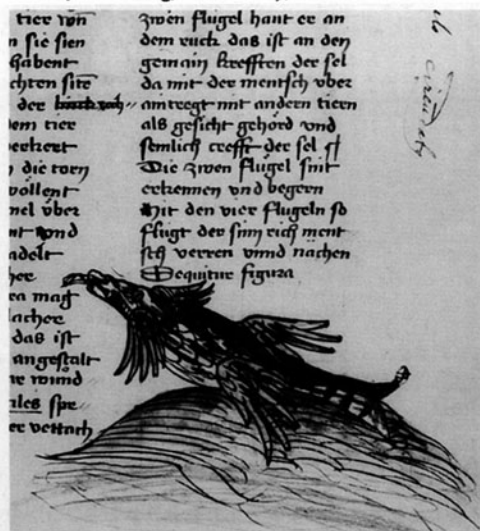 tier von
n sie sien
habent
chten site
der
dem tier
verkert
n die torn
wöllent
mel über
nt vnd
adelt
her
ea mag
lacher
das ist
angestalt
re wind
iles spe
er vettach
zwen flúgel haut er an
dem ruck das ist an den
gemain krefften der sel
da mit der mentsch vber
amtregt mit andern tieren
als gesicht gehörd vnd
semlich crefft der sel
Die zwen flúgel sint
erkennen vnd begern
Mit den vier flugeln so
flúgt der sinn rich ment
sch verren vnnd nächen
Sequitur figura